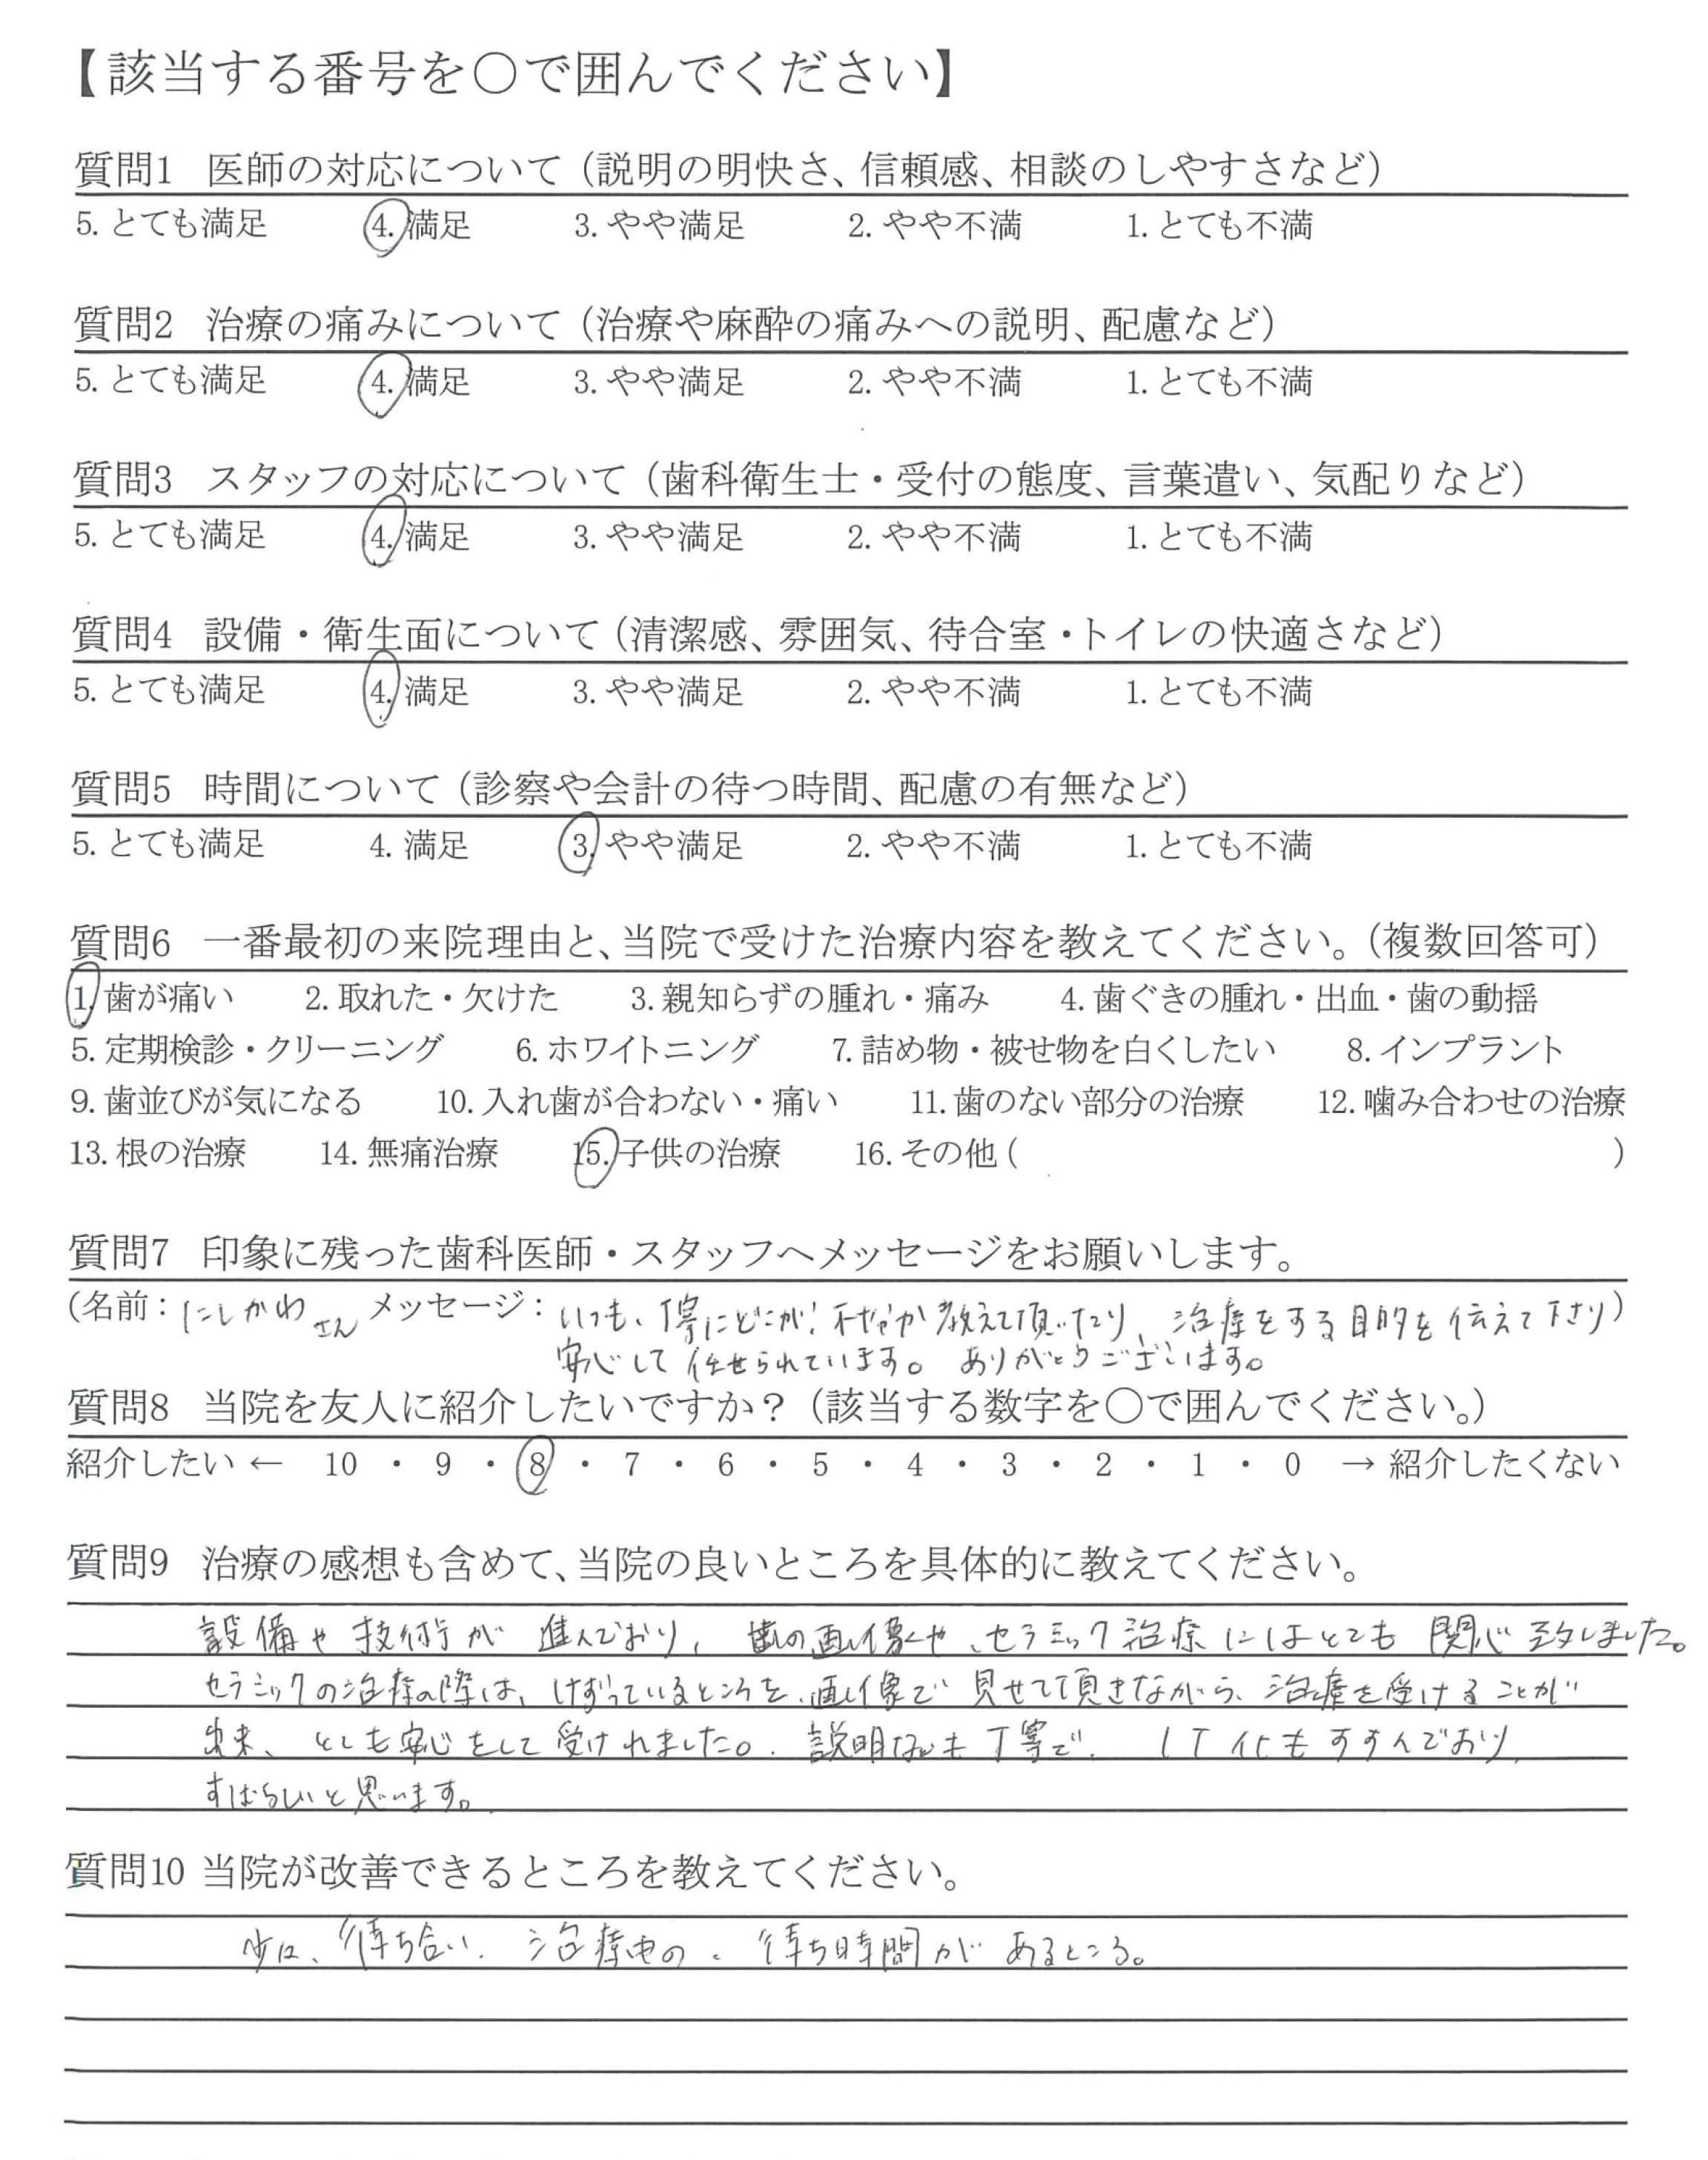 【該当する番号を○で囲んでください】
質問1 医師の対応について（説明の明快さ、信頼感、相談のしやすさなど）
5. とても満足 4. 満足 3. やや満足 2. やや不満 1. とても不満
質問2 治療の痛みについて（治療や麻酔の痛みへの説明、配慮など）
5. とても満足 4. 満足 3. やや満足 2. やや不満 1. とても不満
質問3 スタッフの対応について（歯科衛生士・受付の態度、言葉遣い、気配りなど）
5. とても満足 4. 満足 3. やや満足 2. やや不満 1. とても不満
質問4 設備・衛生面について（清潔感、雰囲気、待合室・トイレの快適さなど）
5. とても満足 4. 満足 3. やや満足 2. やや不満 1. とても不満
質問5 時間について（診察や会計の待つ時間、配慮の有無など）
5. とても満足 4. 満足 3. やや満足 2. やや不満 1. とても不満
質問6 一番最初の来院理由と、当院で受けた治療内容を教えてください。（複数回答可）
1. 歯が痛い 2. 取れた・欠けた 3. 親知らずの腫れ・痛み 4. 歯ぐきの腫れ・出血・歯の動揺
5. 定期検診・クリーニング 6. ホワイトニング 7. 詰め物・被せ物を白くしたい 8. インプラント
9. 歯並びが気になる 10. 入れ歯が合わない・痛い 11. 歯のない部分の治療 12. 噛み合わせの治療
13. 根の治療 14. 無痛治療 15. 子供の治療 16. その他（ ）
質問7 印象に残った歯科医師・スタッフへメッセージをお願いします。
（名前：にしかわさん メッセージ：いつも、丁寧にどこが 教えて頂いたり、治療をする目的を伝えて下さり）
安心して任せられています。ありがとうございます。
質問8 当院を友人に紹介したいですか？（該当する数字を○で囲んでください。）
紹介したい ← 10 ・ 9 ・ 8 ・ 7 ・ 6 ・ 5 ・ 4 ・ 3 ・ 2 ・ 1 ・ 0 → 紹介したくない
質問9 治療の感想も含めて、当院の良いところを具体的に教えてください。
設備や技術が進んでおり、歯の画像や、セラミック治療にはとても関心致しました。
セラミックの治療の際は、けずっているところを、画像で見せて頂きながら、治療を受けることが
出来、とても安心をして受けれました。説明なども丁寧で、IT化もすすんでおり、
すばらしいと思います。
質問10 当院が改善できるところを教えてください。
待ち合い、治療中の、待ち時間があるところ。